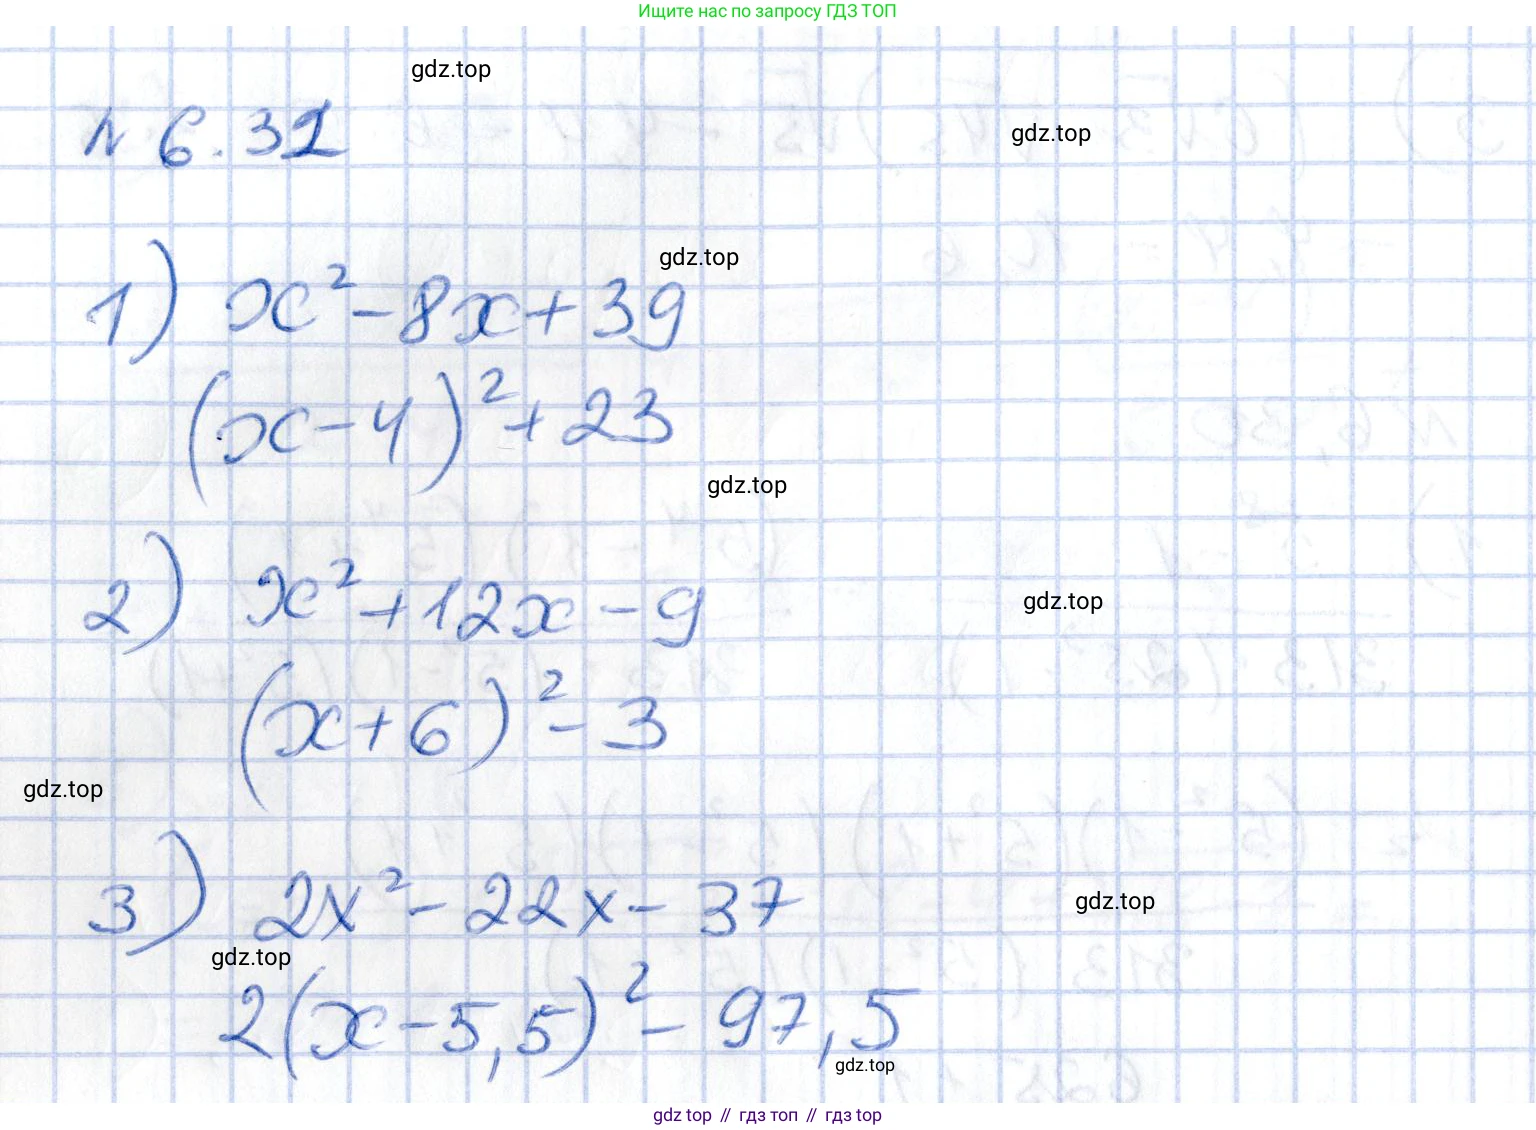 Ищите нас по запросу ГДЗ ТОП
gdz.top
gdz.top
N 6.31
gdz.top
1) x² - 8x + 39
(x - 4)² + 23
gdz.top
2) x² + 12x - 9
gdz.top
(x + 6)² - 3
gdz.top
3) 2x² - 22x - 37
gdz.top
gdz.top
2(x - 5,5)² - 97,5
gdz.top
gdz top // гдз топ // гдз top